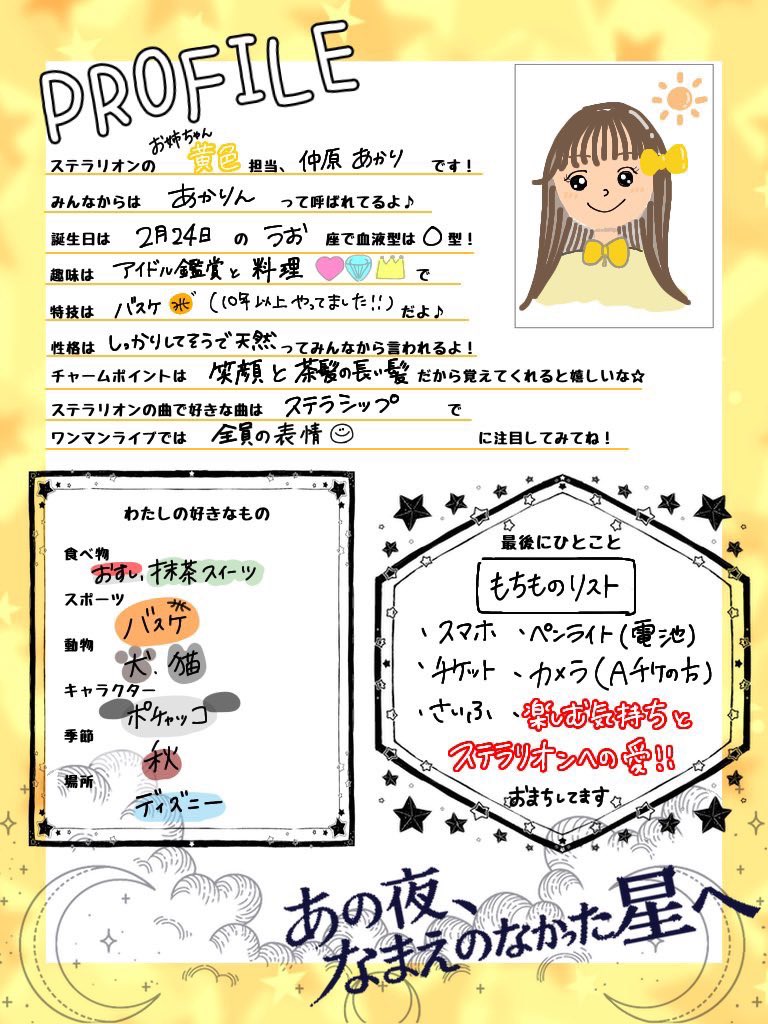 PROFILE
お姉ちゃん
ステラリオンの 黄色 担当、仲原 あかり です！
みんなからは あかりん って呼ばれてるよ♪
誕生日は 2月24日 の うお 座で血液型は O 型！
趣味は アイドル鑑賞と料理 で
特技は バスケ (10年以上やってました!!) だよ♪
性格は しっかりしてそうで天然 ってみんなから言われるよ！
チャームポイントは 笑顔と茶髪の長い髪 だから覚えてくれると嬉しいな☆
ステラリオンの曲で好きな曲は ステラシップ で
ワンマンライブでは 全員の表情 に注目してみてね！
わたしの好きなもの
食べ物
おすし, 抹茶スイーツ
スポーツ
バスケ
動物
犬、猫
キャラクター
ポチャッコ
季節
秋
場所
ディズニー
最後にひとこと
もちものリスト
・スマホ ・ペンライト(電池)
・チケット ・カメラ(Aチケの方)
・さいふ ・楽しむ気持ちと
ステラリオンへの愛!!
おまちしてます
あの夜、
なまえのなかった星へ